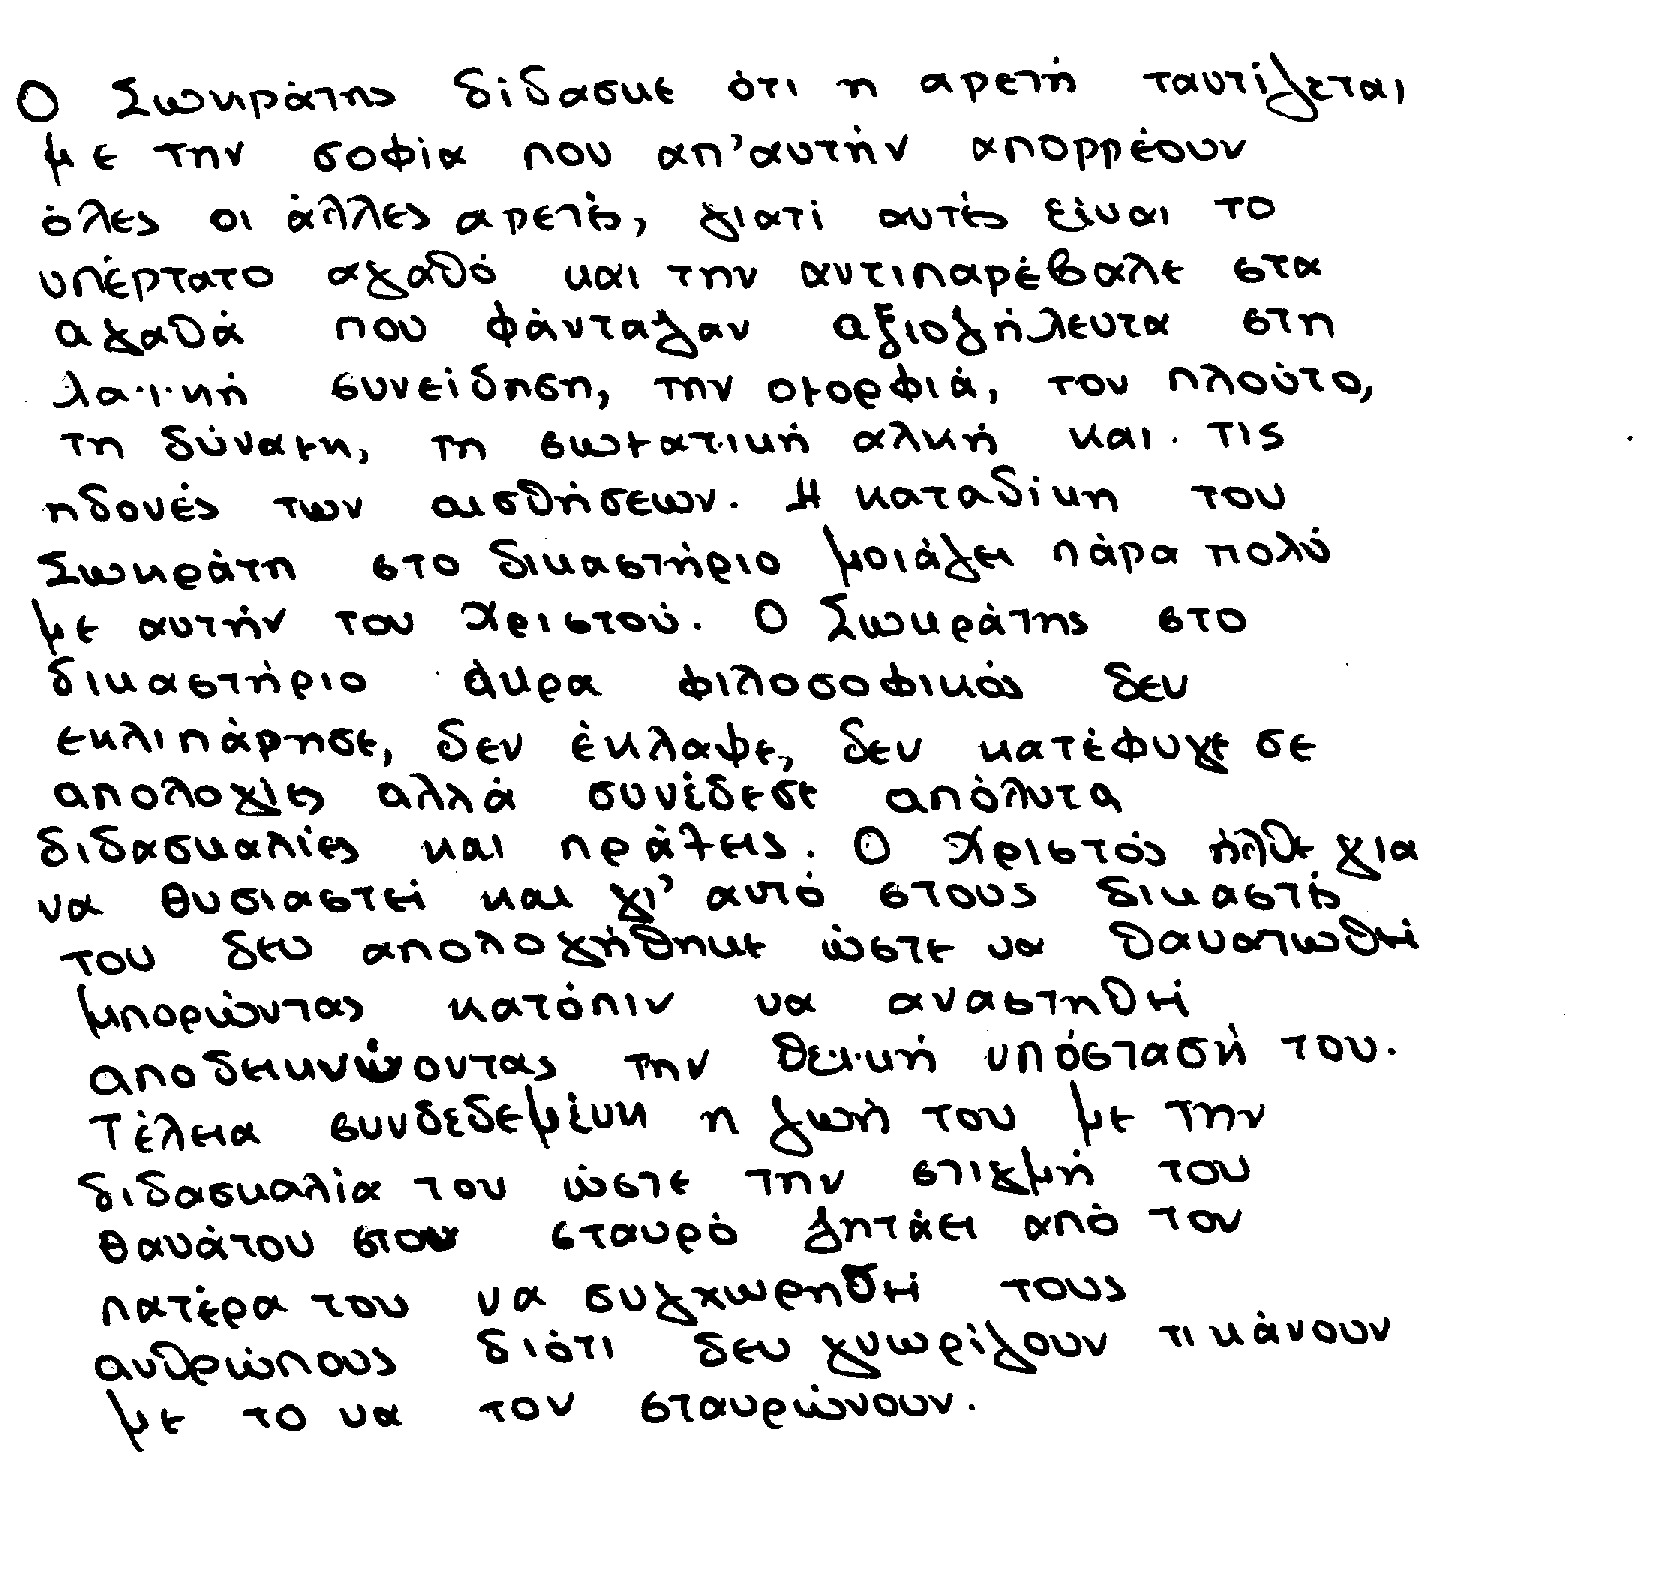 Ο Σωκράτης δίδασκε ότι η αρετή ταυτίζεται
με την σοφία που απ'αυτήν απορρέουν
όλες οι άλλες αρετές, γιατί αυτές είναι το
υπέρτατο αγαθό και την αντιπαρέβαλε στα
αγαθά που φάνταζαν αξιοζήλευτα στη
λαϊκή συνείδηση, την ομορφιά, τον πλούτο,
τη δύναμη, τη σωματική αλκή και τις
ηδονές των αισθήσεων. Η καταδίκη του
Σωκράτη στο δικαστήριο μοιάζει πάρα πολύ
με αυτήν του Χριστού. Ο Σωκράτης στο
δικαστήριο άκρα φιλοσοφικός δεν
εκλιπάρησε, δεν έκλαψε, δεν κατέφυγε σε
απολογίες αλλά συνέδεσε απόλυτα
διδασκαλίες και πράξεις. Ο Χριστός ήλθε για
να θυσιαστεί και γι' αυτό στους δικαστές
του δεν απολογήθηκε ώστε να θανατωθεί
μπορώντας κατόπιν να αναστηθεί
αποδεικνύοντας την θεϊκή υπόστασή του.
Τέλεια συνδεδεμένη η ζωή του με την
διδασκαλία του ώστε την στιγμή του
θανάτου στου σταυρό ζητάει από τον
πατέρα του να συγχωρηθεί τους
ανθρώπους διότι δεν γνωρίζουν τι κάνουν
με το να τον σταυρώνουν.